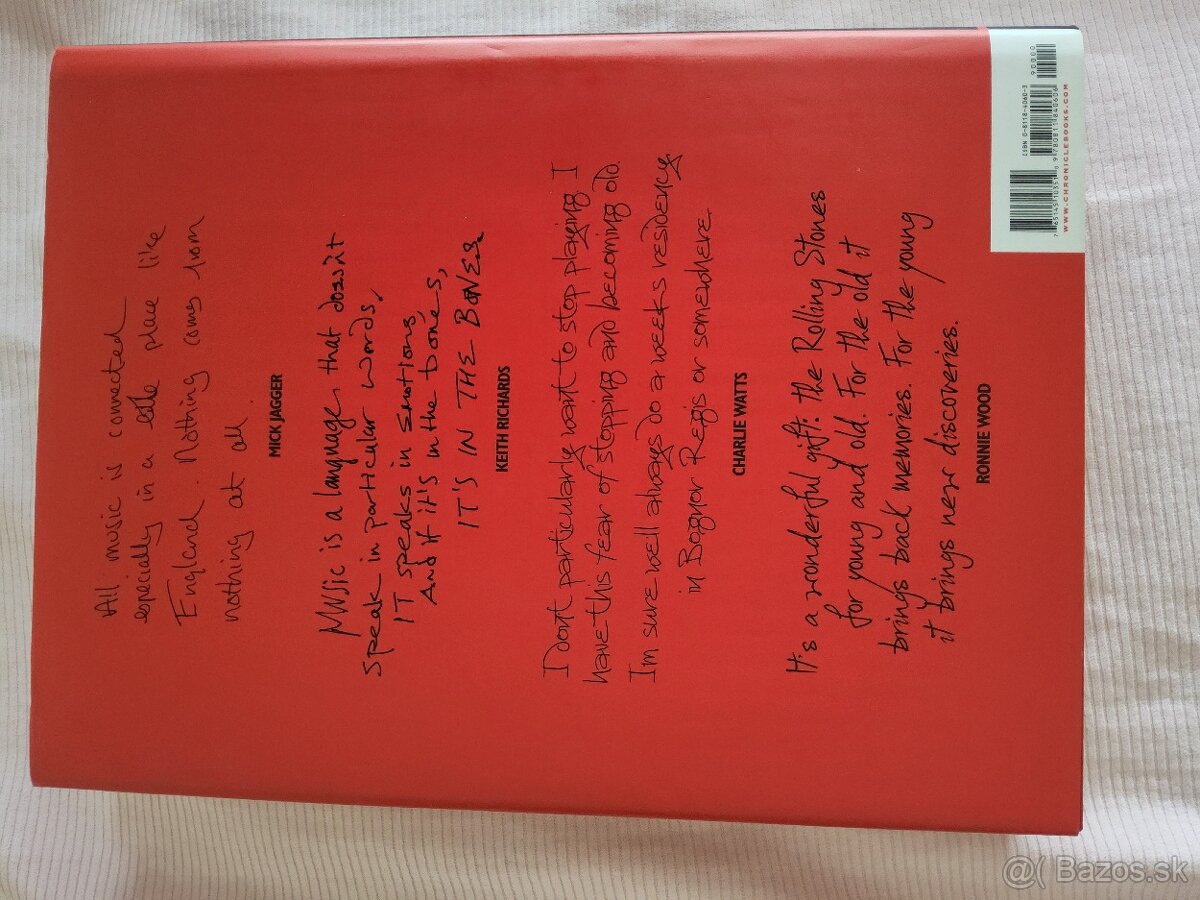 All music is connected
especially in a little place like
England. Nothing comes from
nothing at all
MICK JAGGER
MUSIC IS A language that doesn't
speak in particular words,
IT speaks in emotions,
And if it's in the bones,
IT'S IN THE BONES.
KEITH RICHARDS
I dont particularly want to stop playing I
have this fear of stopping and becoming old.
Im sure well always do a weeks residency
in Bognor Regis or somewhere.
CHARLIE WATTS
It's a wonderful gift: the Rolling Stones
for young and old. For the old it
brings back memories. For the young
it brings new discoveries.
RONNIE WOOD
ISBN 0-8118-4060-3
90000
9 780811 840606
7 65145 10351 0
WWW.CHRONICLEBOOKS.COM
@( Bazos.sk